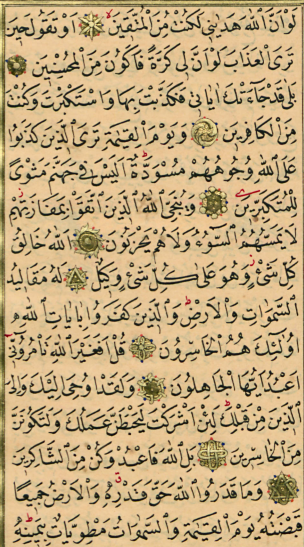 لَوْ اَنَّ اللّٰهَ هَدٰينِي لَكُنْتُ مِنَ الْمُتَّقِينَ اَوْ تَقُولَ حِينَ
تَرَى الْعَذَابَ لَوْ اَنَّ لِي كَرَّةً فَاَكُونَ مِنَ الْمُحْسِنِينَ
بَلٰى قَدْ جَاءَتْكَ اٰيَاتِي فَكَذَّبْتَ بِهَا وَاسْتَكْبَرْتَ وَكُنْتَ
مِنَ الْكَافِرِينَ وَيَوْمَ الْقِيٰمَةِ تَرَى الَّذِينَ كَذَبُوا
عَلَى اللّٰهِ وُجُوهُهُمْ مُسْوَدَّةٌ اَلَيْسَ فِي جَهَنَّمَ مَثْوًى
لِلْمُتَكَبِّرِينَ وَيُنَجِّي اللّٰهُ الَّذِينَ اتَّقَوْا بِمَفَازَتِهِمْ
لَا يَمَسُّهُمُ السُّوءُ وَلَا هُمْ يَحْزَنُونَ اَللّٰهُ خَالِقُ
كُلِّ شَيْءٍ وَهُوَ عَلٰى كُلِّ شَيْءٍ وَكِيلٌ لَهُ مَقَالِيدُ
السَّمٰوَاتِ وَالْاَرْضِ وَالَّذِينَ كَفَرُوا بِاٰيَاتِ اللّٰهِ
اُولٰئِكَ هُمُ الْخَاسِرُونَ قُلْ اَفَغَيْرَ اللّٰهِ تَاْمُرُونِّي
اَعْبُدُ اَيُّهَا الْجَاهِلُونَ وَلَقَدْ اُوحِيَ اِلَيْكَ وَاِلَى
الَّذِينَ مِنْ قَبْلِكَ لَئِنْ اَشْرَكْتَ لَيَحْبَطَنَّ عَمَلُكَ وَلَتَكُونَنَّ
مِنَ الْخَاسِرِينَ بَلِ اللّٰهَ فَاعْبُدْ وَكُنْ مِنَ الشَّاكِرِينَ
وَمَا قَدَرُوا اللّٰهَ حَقَّ قَدْرِهِ وَالْاَرْضُ جَمِيعًا
قَبْضَتُهُ يَوْمَ الْقِيٰمَةِ وَالسَّمٰوَاتُ مَطْوِيَّاتٌ بِيَمِينِهِ